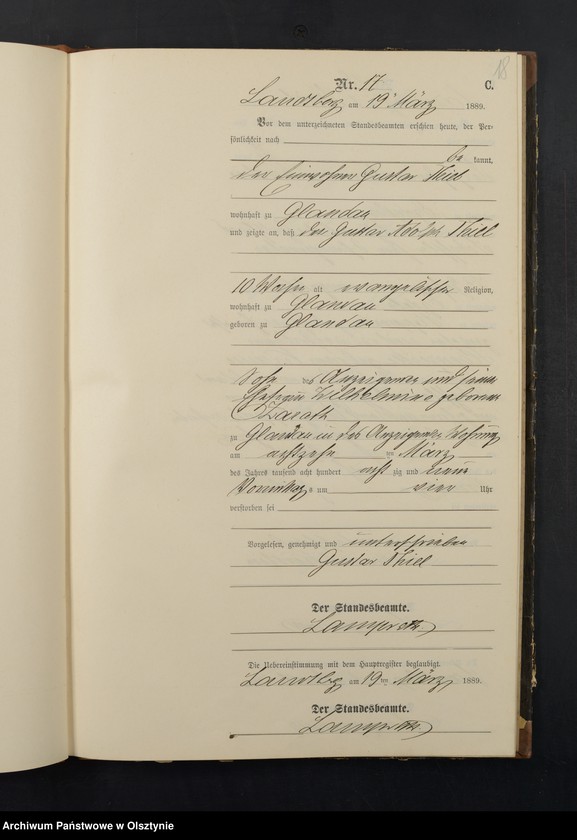 18
Nr. 17 C.
Landsberg am 19 März 1889.
Vor dem unterzeichneten Standesbeamten erschien heute, der Per-
sönlichkeit nach
be kannt,
der Einwohner Gustav Thiel
wohnhaft zu Glandau
und zeigte an, daß der Gustav Adolph Thiel
10 Wochen alt evangelischer Religion,
wohnhaft zu Glandau
geboren zu Glandau
Sohn des Anzeigenden und seiner
Ehefrau Wilhelmine geborenen
zu Glandau in des Anzeigenden Wohnung
am achtzehn ten März
des Jahres tausend acht hundert acht zig und neun
Vormittags um vier Uhr
verstorben sei
Vorgelesen, genehmigt und unterschrieben
Gustav Thiel
Der Standesbeamte.
Die Uebereinstimmung mit dem Hauptregister beglaubigt.
Landsbg am 19ten März 1889.
Der Standesbeamte.
Archiwum Państwowe w Olsztynie